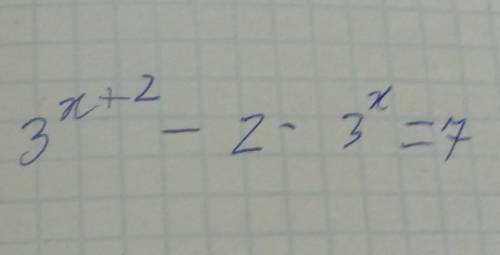 3^{x+2} - 2 · 3^x = 7